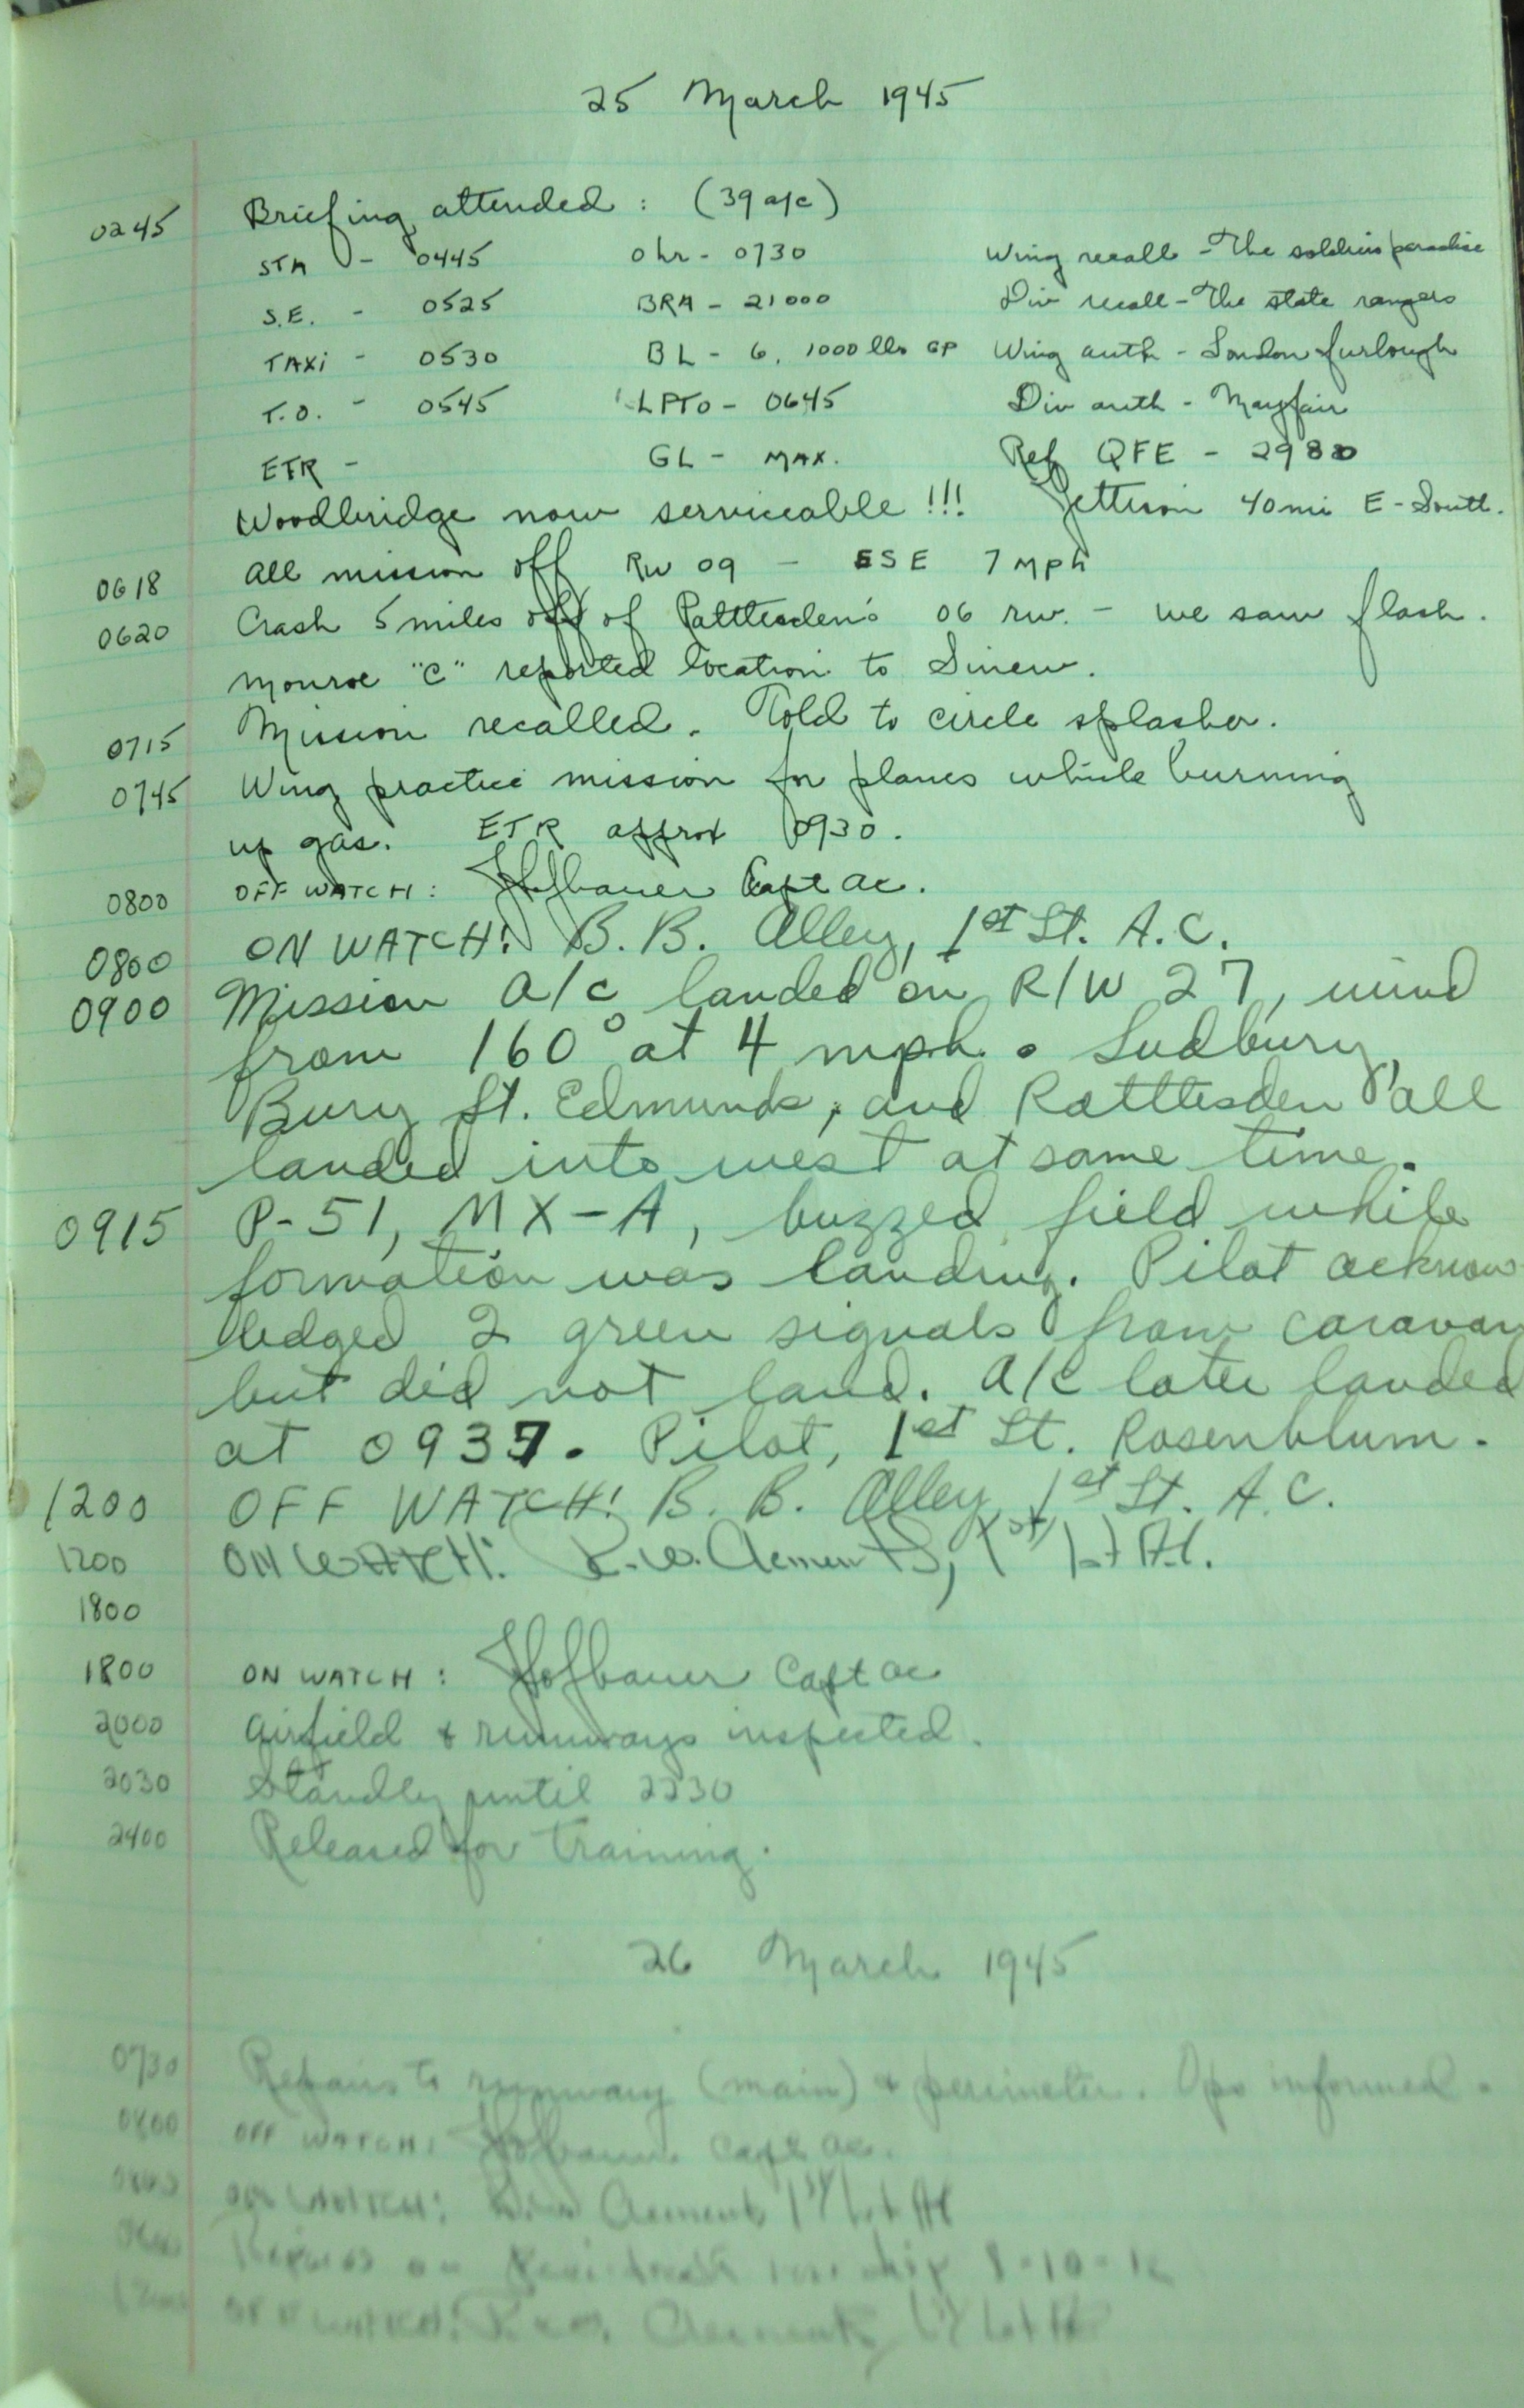 25 March 1945
0245 Briefing attended : (39 a/c)
STA - 0445 0 hr - 0730 Wing recall - The soldiers paradise
S.E. - 0525 BRA - 21000 Div recall - The state rangers
TAXi - 0530 BL - 6, 1000 lbs GP Wing auth - London furlough
T.O. - 0545 LPTO - 0645 Div auth - Mayfair
ETR - GL - MAX. Ref QFE - 2980
Woodbridge now serviceable !!! Jettison 40 mi E - South.
0618 All mission off RW 09 - ESE 7 MPh
0620 Crash 5 miles off of Rattlesden's 06 rw. - we saw flash.
Monroe "C" reported location to Sinew.
0715 Mission recalled. Told to circle splasher.
0745 Wing practice mission for planes while burning
up gas. ETR approx 0930.
0800 OFF WATCH : Hofbauer Capt ac.
0800 ON WATCH: B. B. Alley, 1st Lt. A.C.
0900 Mission a/c landed on R/W 27, wind
from 160° at 4 mph. Sudbury,
Bury St. Edmunds, and Rattlesden all
landed into west at same time.
0915 P-51, MX-A, buzzed field while
formation was landing. Pilot acknow
ledged 2 green signals from caravan
but did not land. A/C later landed
at 0937. Pilot, 1st Lt. Rosenblum.
1200 OFF WATCH: B. B. Alley, 1st Lt. A.C.
1200 ON WATCH: R.W. Clements, 1st Lt A.C.
1800
1800 ON WATCH : Hofbauer Capt ac
2000 Airfield & runways inspected.
2030 Standby until 2230
2400 Released for training.
26 March 1945
0730 Repairs to runway (main) & perimeter. Ops informed.
0800 OFF WATCH: Hofbauer Capt ac.
ON WATCH: Clements 1st Lt AC
OFF WATCH: Clements 1st Lt